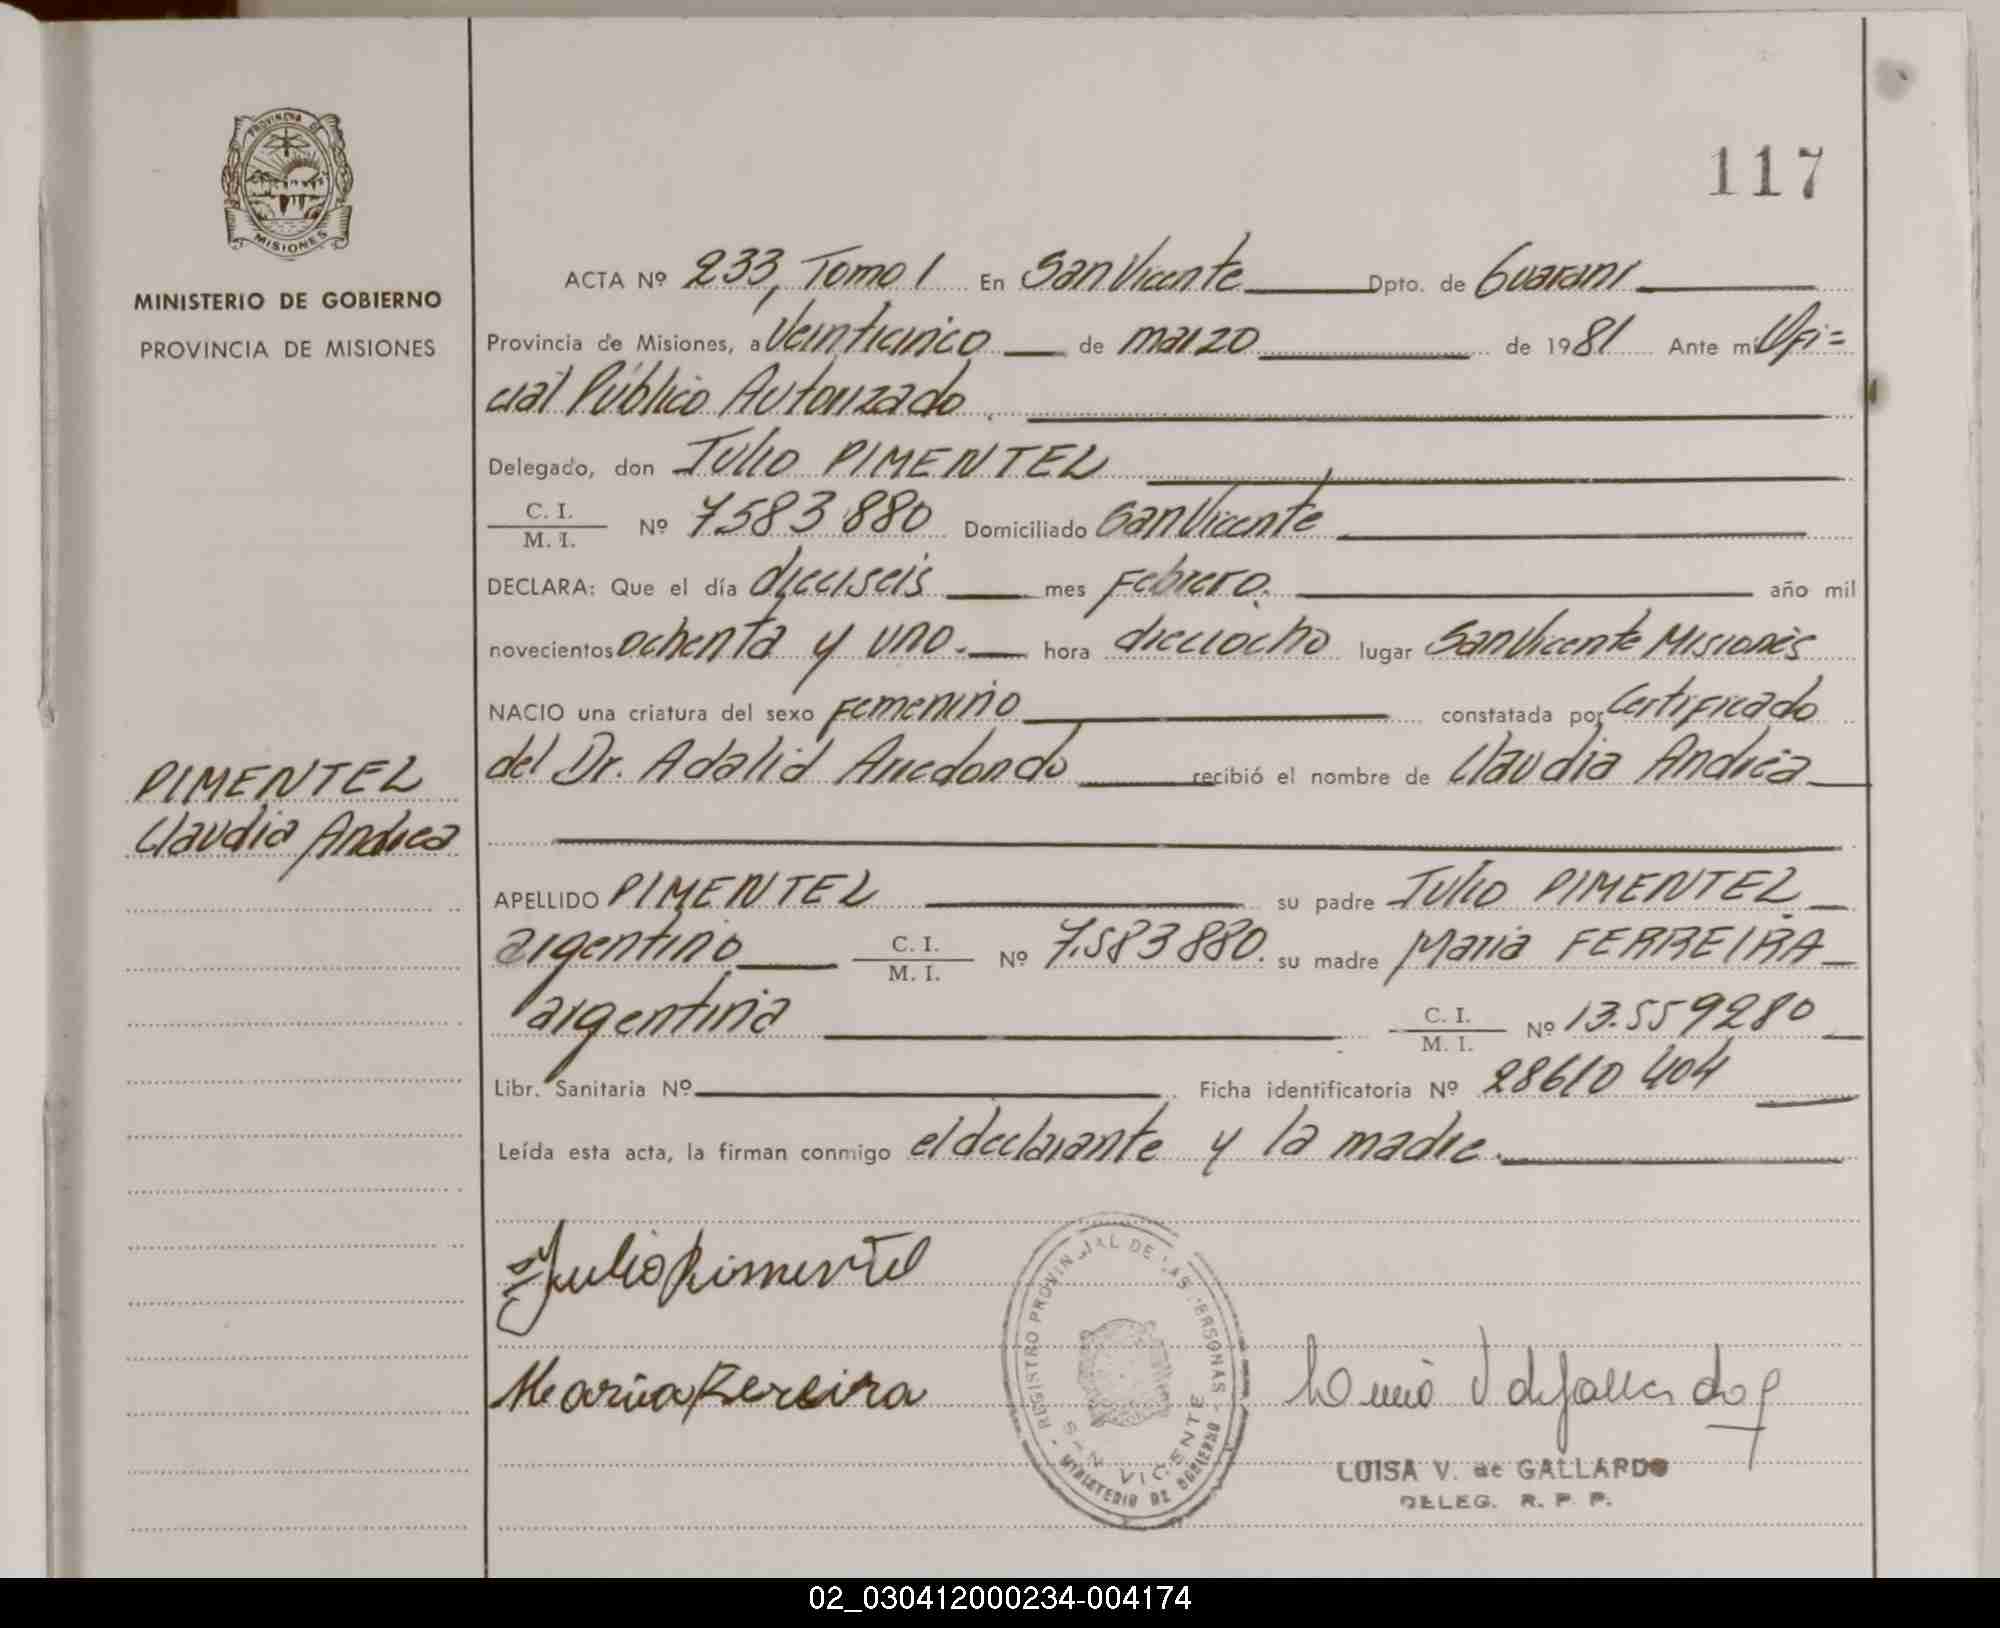 PROVINCIA DE
MISIONES
MINISTERIO DE GOBIERNO
PROVINCIA DE MISIONES
PIMENTEL
Claudia Andrea
117
ACTA Nº 233, Tomo 1 En San Vicente Dpto. de Guaraní
Provincia de Misiones, a Veinticinco de marzo de 1981 Ante mi Ofi=
cial Público Autorizado.
Delegado, don Julio PIMENTEL
C. I.
M. I. Nº 7583880 Domiciliado San Vicente
DECLARA: Que el día dieciseis mes Febrero. año mil
novecientos ochenta y uno. hora dieciocho lugar San Vicente Misiones
NACIO una criatura del sexo Femenino constatada por Certificado
del Dr. Adalid Arredondo recibió el nombre de Claudia Andrea
APELLIDO PIMENTEL su padre Julio PIMENTEL
argentino C. I.
M. I. Nº 7.583880. su madre Maria FERREIRA
argentina C. I.
M. I. Nº 13.559280
Libr. Sanitaria Nº Ficha identificatoria Nº 28610404
Leída esta acta, la firman conmigo el declarante y la madre.
Julio Pimentel
Maria Fereira
REGISTRO PROVINCIAL DE LAS PERSONAS
SAN VICENTE
MINISTERIO DE GOBIERNO
LUISA V. de GALLARDO
DELEG. R. P. P.
02_030412000234-004174